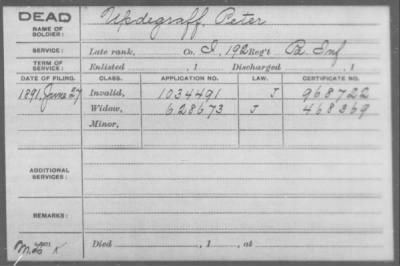 DEAD
NAME OF SOLDIER: Updegraff, Peter
SERVICE: Late rank, Co. I, 192 Reg't Pa Inf
TERM OF SERVICE: Enlisted , 1 Discharged , 1
DATE OF FILING. CLASS. APPLICATION NO. LAW. CERTIFICATE NO.
1891, June 27 Invalid, 1034491 J 968722
Widow, 628673 J 468369
Minor,
ADDITIONAL SERVICES:
REMARKS:
Died , 1 , at